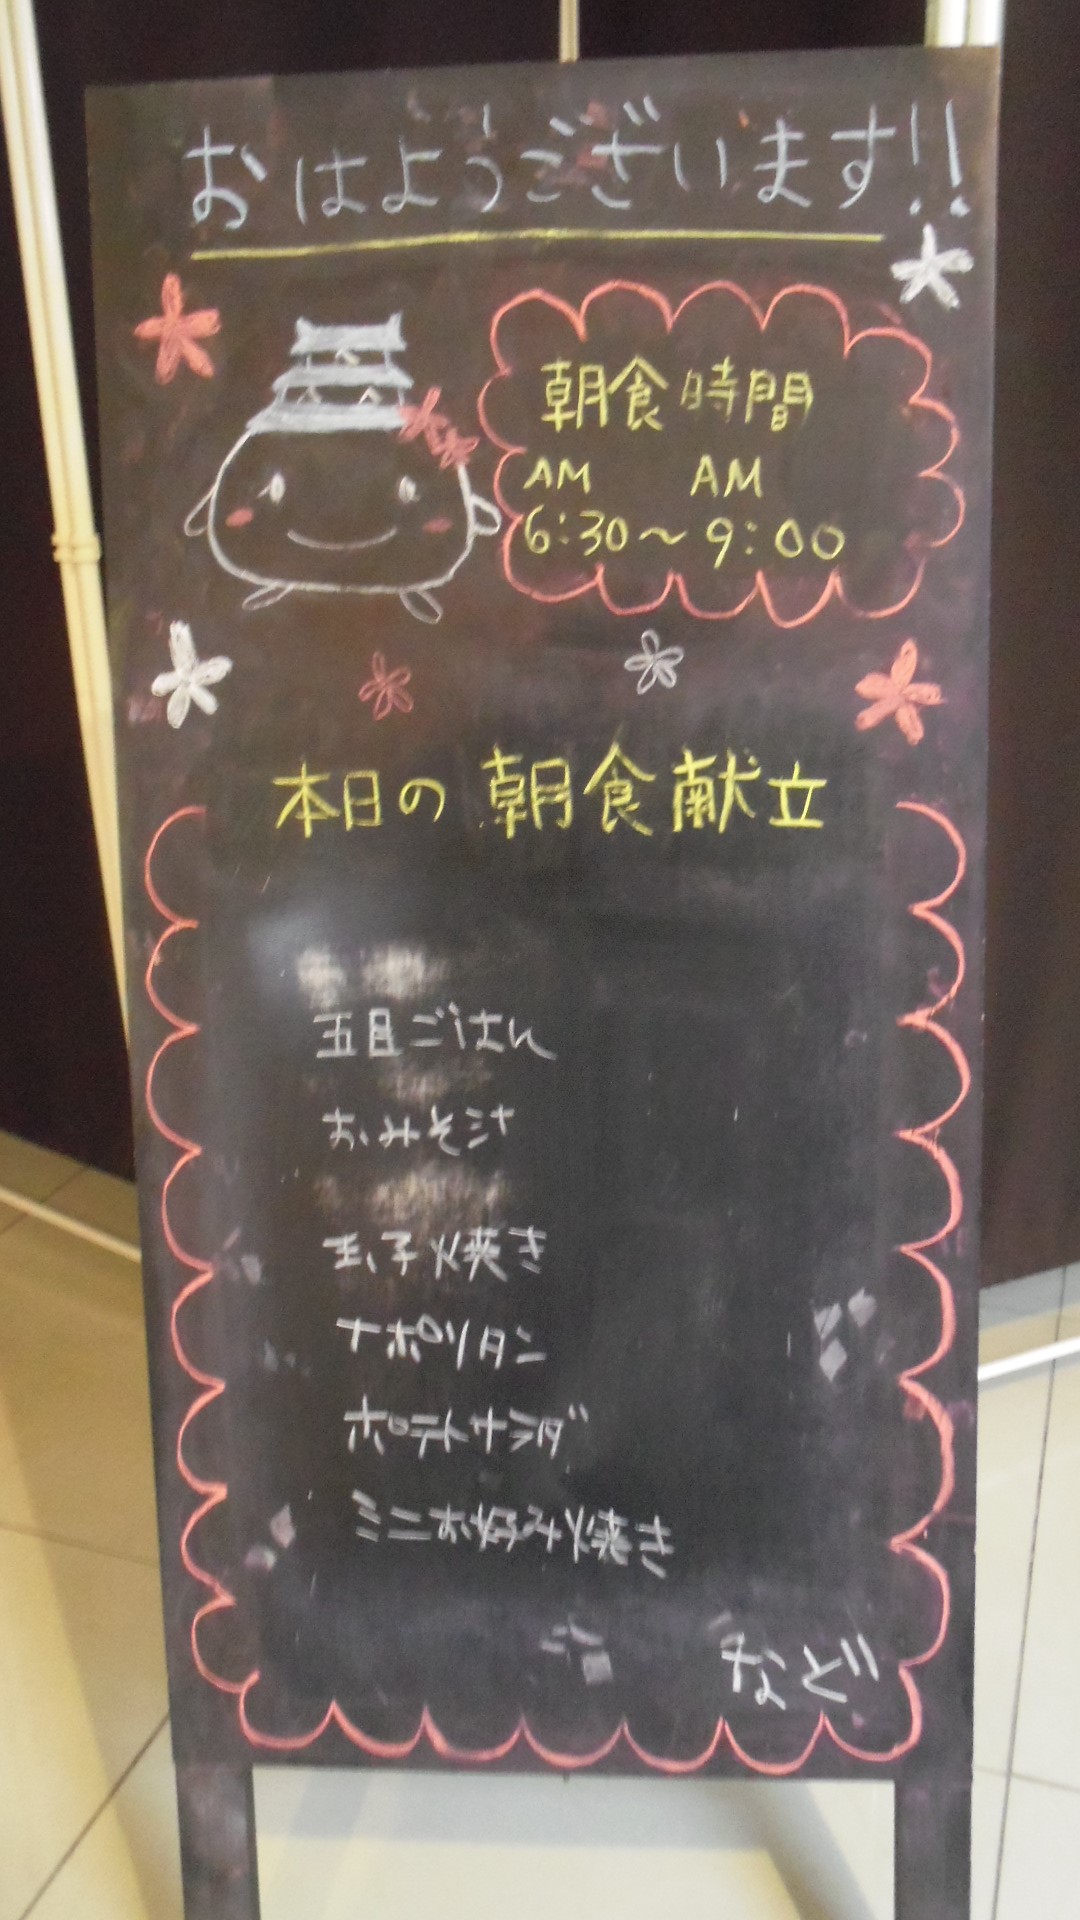 おはようございます!!
朝食時間
AM AM
6:30～9:00
本日の朝食献立
五目ごはん
おみそ汁
玉子焼き
ナポリタン
ポテトサラダ
ミニお好み焼き
など